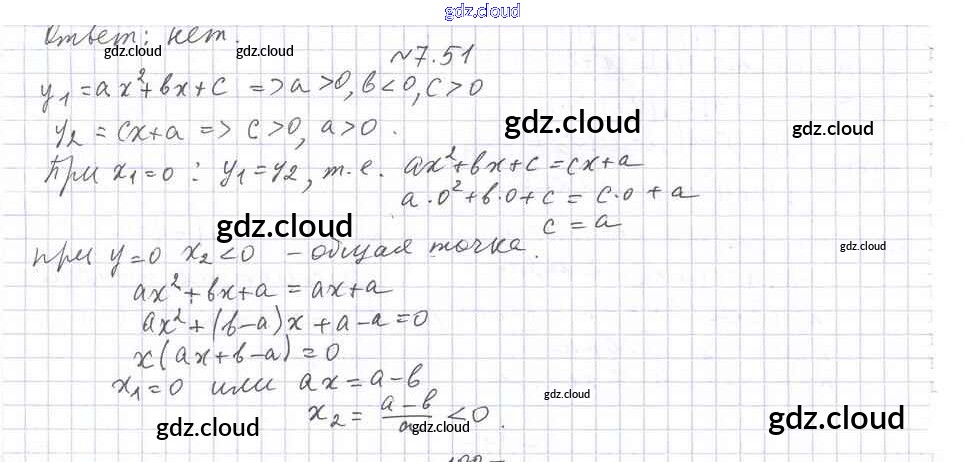 gdz.cloud
Ответ: нет.
gdz.cloud gdz.cloud
№7.51
y₁=ax²+bx+c => a>0, b<0, c>0
y₂=cx+a => c>0, a>0.
gdz.cloud gdz.cloud
При x₁=0: y₁=y₂, т.е. ax²+bx+c=cx+a
a·0²+b·0+c=c·0+a
gdz.cloud
c=a
при y=0 x₂<0 – общая точка.
gdz.cloud
ax²+bx+a=ax+a
ax²+(b-a)x+a-a=0
x(ax+b-a)=0
x₁=0 или ax=a-b
gdz.cloud
x₂=(a-b)/a<0.
gdz.cloud gdz.cloud gdz.cloud